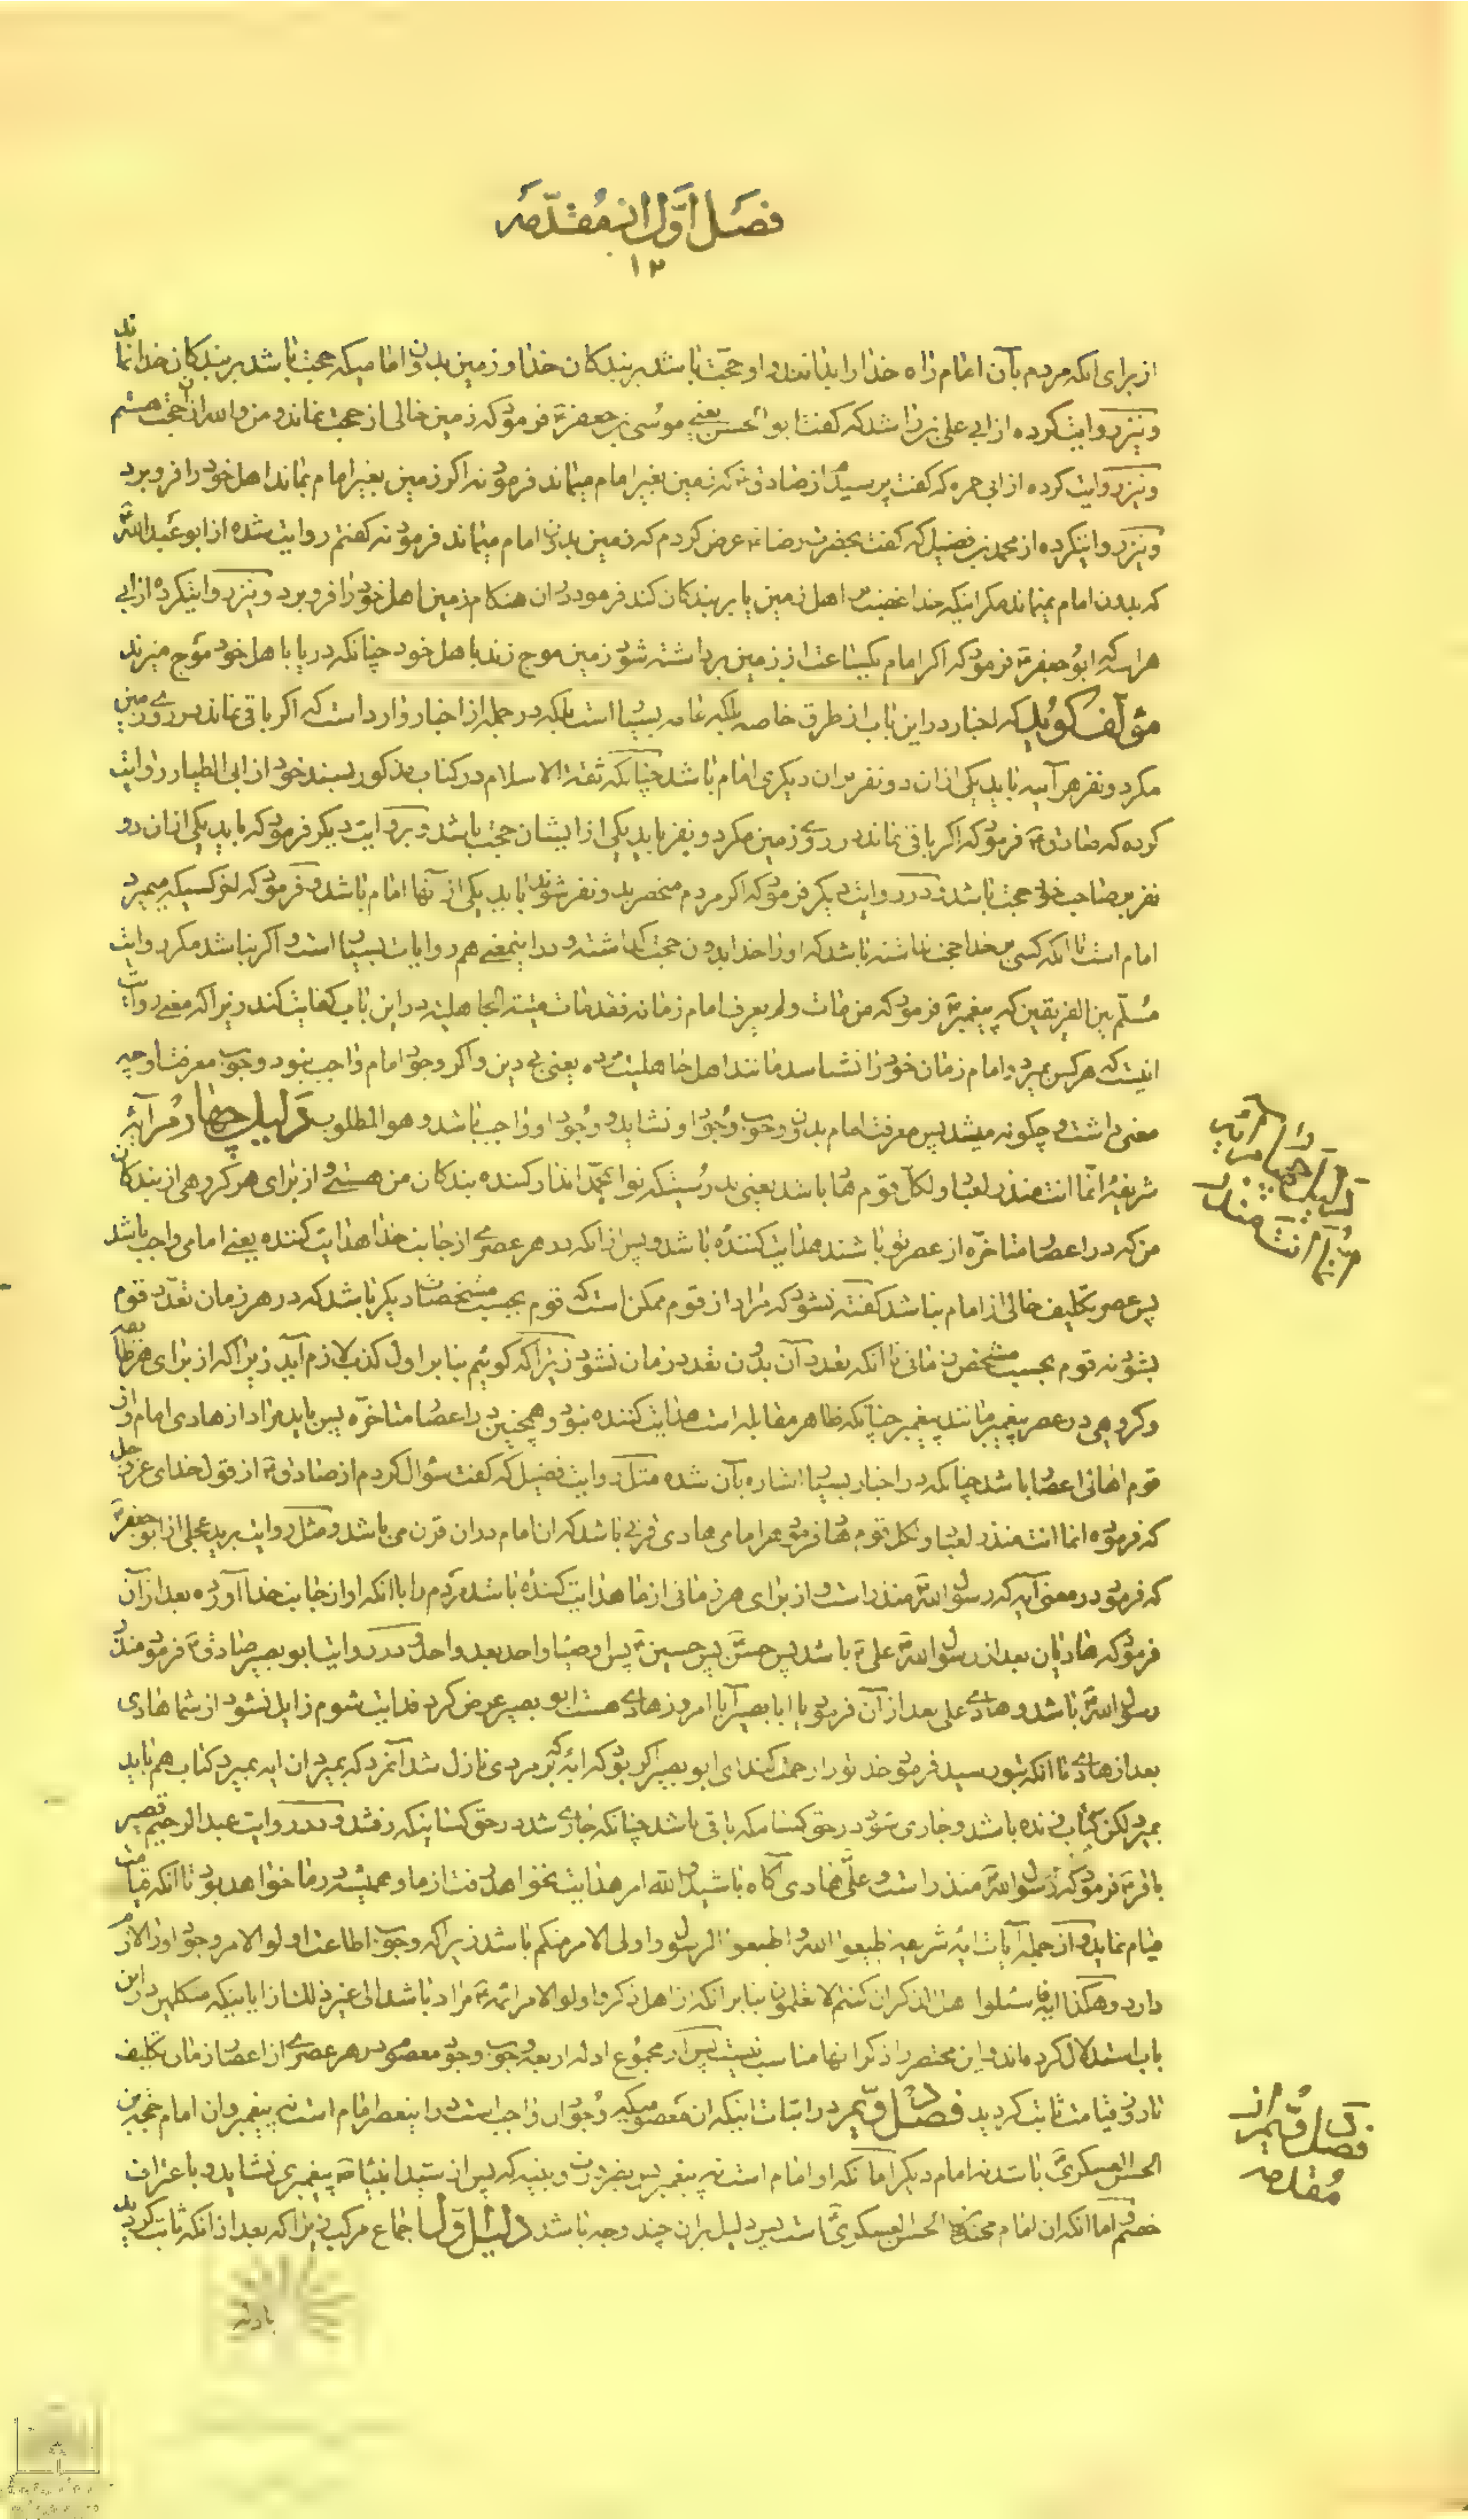 فصل اول از مقدمه
۱۲
از برای انکه مردم بآن امام راه خدا را بدانند و او حجت باشد بر بندکان خدا و زمین بدون امامیکه حجت باشد بر بندکان خدا نماند
و نیز روایت کرده از ابی علی بن راشد که کفت ابو الحسن یعنی موسی بن جعفر ع فرمود که زمین خالی از حجت نماند و من والله ان حجت هستم
و نیز روایت کرده از ابی حمزه که کفت پرسیدم از صادق ع که زمین بغیر امام میماند فرمود نه اکر زمین بغیر امام بماند اهل خود را فرو برد
و نیز روایتکرده از محمد بن فضیل که کفت بحضرت رضا ع عرض کردم که زمین بدون امام میماند فرمود نه کفتم روایت شده از ابو عبدالله ع
که بدون امام نمیماند مکر اینکه خدا غضب بر اهل زمین یا بر بندکان کند فرمود در ان هنکام زمین اهل خود را فرو برد و نیز روایتکرده از ابی
هراسه که ابو جعفر ع فرمود که اکر امام یکساعت از زمین برداشته شود زمین موج زند با اهل خود چنانکه دریا با اهل خود موج میزند
مؤلف کوید که اخبار در این باب از طرق خاصه بلکه عامه بسیار است بلکه در جمله از اخبار وارد است که اکر باقی نماند در روی زمین
مکر دو نفر هر آینه باید یکی از ان دو نفر بر ان دیکری امام باشد چنانکه ثقة الاسلام در کتاب مذکور بسند خود از ابی الطیار روایت
کرده که صادق ع فرمود که اکر باقی نماند در روی زمین مکر دو نفر باید یکی از ایشان حجت باشد و بروایت دیکر فرمود که باید یکی از ان دو
نفر بر صاحب خود حجت باشد و در روایت دیکر فرمود که اکر مردم منحصر بدو نفر شوند باید یکی از آنها امام باشد و فرمود که اخر کسیکه میمیرد
امام است تا انکه کسی بر خدا حجت نداشته باشد که او را خدا بدون حجت کذاشته و در اینمعنی هم روایات بسیار است و اکر نباشد مکر روایت
مسلم بین الفریقین که پیغمبر ص فرمود که من مات و لم یعرف امام زمانه فقد مات میتة الجاهلیة در این باب کفایت کند زیرا که معنی روایت
انیست که هر کس بمیرد و امام زمان خود را نشناسد مانند اهل جاهلیت مرده یعنی بی دین و اکر وجود امام واجب نبود وجوب معرفت او چه
معنی داشت و چکونه میشد پس معرفت امام بدون وجوب وجود او نشاید و وجود او واجب باشد و هو المطلوب دلیل چهارم آیه
شریفه انما انت منذر لعباد و لکل قوم هاد باشد یعنی بدرستیکه تو ای محمد انذار کننده بندکان من هستی و از برای هر کروهی از بندکان
من که در اعصار متاخره از عصر تو باشند هدایت کننده باشد و پس از انکه در هر عصری از جانب خدا هدایت کننده یعنی امامی واجب باشد
پس عصر تکلیف خالی از امام نباشد کفته نشود که مراد از قوم ممکن است که قوم بحسب مشخصات دیکر باشد که در هر زمان تعدد قوم
بشود نه قوم بحسب مشخص زمانی تا انکه تعدد آن بدون تعدد زمان نشود زیرا که کوئیم بنابر اول کذب لازم آید زیرا که از برای هر طائفه
و کروهی در عصر پیغمبر مانند پیغمبر چنانکه ظاهر مقابله است هدایت کننده نبود و همچنین در اعصار متاخره پس باید مراد از هادی امام و از
قوم اهالی اعصار باشد چنانکه در اخبار بسیار اشاره بآن شده مثل روایت فضیل که کفت سؤال کردم از صادق ع از قول خدای عز و جل
که فرموده انما انت منذر لعباد و لکل قوم هاد فرمود هر امامی هادی قرنی باشد که ان امام در ان قرن می باشد و مثل روایت برید عجلی از ابو جعفر ع
که فرمود در معنی آیه که رسول الله ص منذر است و از برای هر زمانی از ما هدایت کننده باشد مردم را با انکه او از جانب خدا آورده بعد از آن
فرمود که هادیان بعد از رسول الله ص علی ع باشد پس حسن ع پس حسین ع پس اوصیاء واحد بعد واحد و در روایت ابو بصیر صادق ع فرمود منذر
رسول الله ص باشد و هادی علی بعد از آن فرمود یا ابا بصیر آیا امروز هادی هست ابو بصیر عرض کرد فدایت شوم زایل نشود از شما هادی
بعد از هادی تا انکه بتو رسید فرمود خدا تو را رحمت کند ای ابو بصیر اکر بود که ایه که بر مردی نازل شد آنمرد که بمیرد ان ایه بمیرد کتاب هم باید
بمیرد لکن کتاب زنده باشد و جاری شود در حق کسانیکه باقی باشد چنانکه جاری شد در حق کسانیکه رفتند و در روایت عبدالرحیم قصیر
باقر ع فرمود که رسول الله ص منذر است و علی هادی آکاه باشید والله امر هدایت نخواهد رفت از ما و همیشه در ما خواهد بود تا انکه قیامت
قیام نماید و از جمله آیات ایه شریفه اطیعوا الله و اطیعوا الرسول و اولی الامر منکم باشد زیرا که وجوب اطاعت اولو الامر وجود او را لازم
دارد و هکذا ایه فاسئلوا اهل الذکر ان کنتم لا تعلمون بنابر انکه از اهل ذکر و اولو الامر ائمه ع مراد باشد الی غیر ذلک از ایاتیکه متکلمین در این
باب استدلال کرده‌اند و این مختصر را ذکر انها مناسب نیست پس از مجموع ادله اربعه وجوب وجود معصوم در هر عصری از اعصار زمان تکلیف
تا روز قیامت ثابت کردید فصل دویم در اثبات اینکه ان معصومیکه وجود ان واجب است در اینعصر امام است نه پیغمبر و ان امام حجة بن
الحسن العسکری ع باشد نه امام دیکر اما انکه او امام است نه پیغمبر پس بضرورت و بدیهه که پس از سید انبیاء ص پیغمبری نشاید و باعتراف
خصم و اما انکه ان امام محمد بن الحسن العسکری ع است پس دلیل بر ان چند وجه باشد دلیل اول اجماع مرکب زیرا که بعد از انکه ثابت کردید
دلیل چهارم آیه
انما انت منذر
فصل دویم از
مقدمه